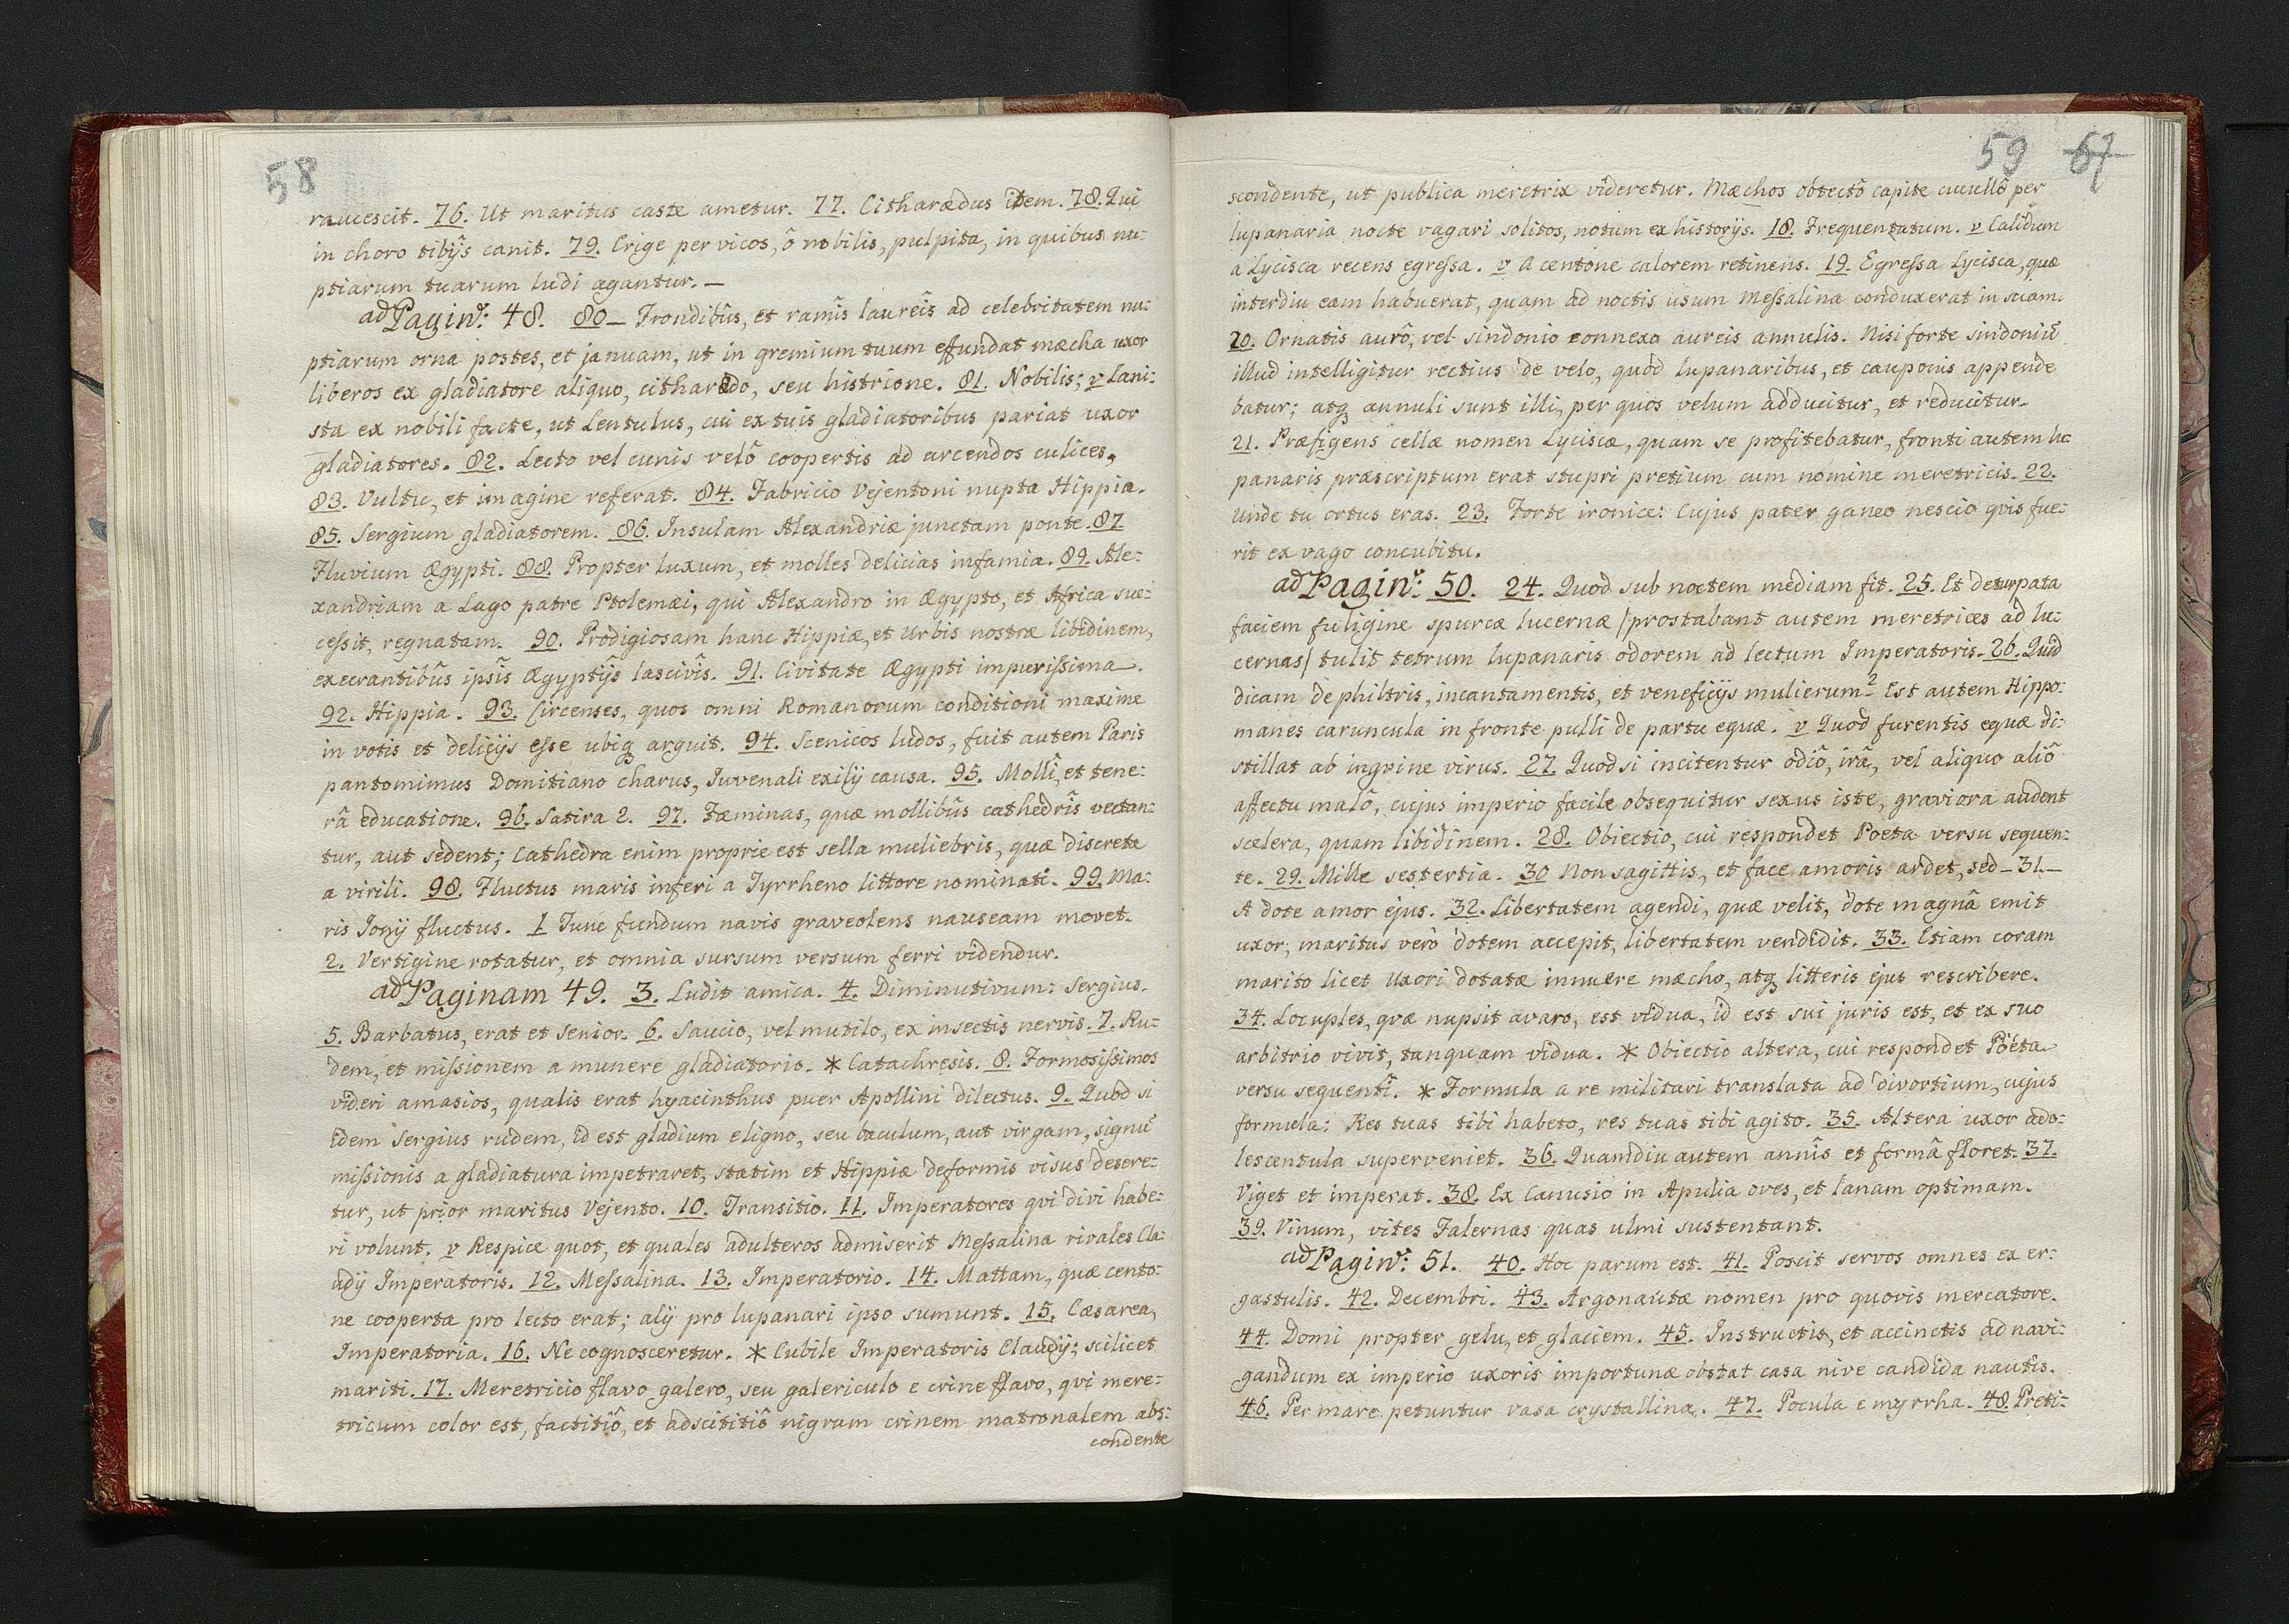 58
raucescit. 76. Ut maritus caste ametur. 77. Citharædus idem. 78. Qui
in choro tibijs canit. 79. Erige per vicos, ô nobilis, pulpita, in quibus nu:
ptiarum tuarum ludi agantur. –
ad Pagin: 48. 80 – Frondibûs, et ramîs laureîs ad celebritatem nu:
ptiarum orna postes, et januam, ut in gremium tuum effundat mæcha uxor
liberos ex gladiatore aliquo, citharædo, seu histrione. 81. Nobilis; v Lani:
sta ex nobili facte, ut Lentulus, cui ex tuis gladiatoribus pariat uxor
gladiatores. 82. Lecto vel cunis velô coopertis ad arcendos culices.
83. Vultu, et imagine referat. 84. Fabricio Vejentoni nupta Hippia.
85. Sergium gladiatorem. 86. Insulam Alexandriæ junctam ponte. 87
Fluvium Ægypti. 88. Propter luxum, et molles delicias infamia. 89. Ale:
xandriam a Lago patre Ptolemæi, qui Alexandro in Ægypto, et Africa suc:
cessit, regnatam. 90. Prodigiosam hanc Hippiæ, et Urbis nostræ libidinem,
execrantibûs ipsîs Ægyptijs lascivîs. 91. Civitate Ægypti impurissima.
92. Hippia. 93. Circenses, quos omni Romanorum conditioni maxime
in votis et delicijs esse ubiq arguit. 94. Scenicos ludos, fuit autem Paris
pantomimus Domitiano charus, Juvenali exilij causa. 95. Molli, et tene:
râ educatione. 96. Satira 2. 97. Fæminas, quæ mollibûs cathedrîs vectan:
tur, aut sedent; Cathedra enim proprie est sella muliebris, quæ discreta
a virili. 98. Fluctus maris inferi a Tyrrheno littore nominati. 99. Ma:
ris Jonij fluctus. 1 Tunc fundum navis graveolens nauseam movet.
2. Vertigine rotatur, et omnia sursum versum ferri videndur.
ad Paginam 49. 3. Ludit amica. 4. Diminutivum: Sergius.
5. Barbatus, erat et senior. 6. Saucio, vel mutilo, ex insectis nervis. 7. Ru:
dem, et missionem a munere gladiatorio. * Catachresis. 8. Formosissimos
videri amasios, qualis erat hyacinthus puer Apollini dilectus. 9. Quod si
idem Sergius rudem, id est gladium eligno, seu baculum, aut virgam, signū
missionis a gladiatura impetraret, statim et Hippiæ deformis visus desere:
tur, ut prior maritus Vejento. 10. Transitio. 11. Imperatores qvi divi habe:
ri volunt. v Respice quot, et quales adulteros admiserit Messalina rivales Cla:
adij Imperatoris. 12. Messalina. 13. Imperatorio. 14. Mattam, quæ cento:
ne cooperta pro lecto erat; alij pro lupanari ipso sumunt. 15. Cæsarea,
Imperatoria. 16. Ne cognosceretur. * Cubile Imperatoris Claudij; scilicet
mariti. 17. Meretricio flavo galero, seu galericulo e crine flavo, qvi mere:
tricum color est, factitiô, et adscititiô nigrum crinem matronalem abs:
condente
59 67
scondente, ut publica meretrix videretur. Mæchos obtectô capite cucullô per
lupanaria nocte vagari solitos, notum ex historijs. 18. Frequentatum. v Calidum
a Lycisca recens egressa. v A centone calorem retinens. 19. Egressa Lycisca, quæ
interdiu eam habuerat, quam ad noctis usum Messalina conduxerat in suam.
20. Ornatis aurô, vel sindonio connexo aureis annulis. Nisi forte sindoniū
illud intelligitur rectius de velo, quod lupanaribus, et cauponis appende
batur; atq annuli sunt illi, per quos velum adducitur, et reducitur.
21. Præfigens cellæ nomen Lyciscæ, quam se profitebatur, fronti autem lu:
panaris præscriptum erat stupri pretium cum nomine meretricis. 22.
Unde tu ortus eras. 23. Forte ironice: Cujus pater ganeo nescio qvis fue:
rit ex vago concubitu.
ad Pagin: 50. 24. Quod sub noctem mediam fit. 25. Et deturpata
faciem fuligine spurcæ lucernæ /prostabant autem meretrices ad lu:
cernas/ tulit tetrum lupanaris odorem ad lectum Imperatoris. 26. Quid
dicam de philtris, incantamentis, et veneficijs mulierum? Est autem Hippo:
manes caruncula in fronte pulli de partu equæ. v Quod furentis equæ di:
stillat ab ingvine virus. 27. Quod si incitentur odiô, irâ, vel aliquo aliô
affectu malô, cujus imperio facile obsequitur sexus iste, graviora audent
scelera, quam libidinem. 28. Obiectio, cui respondet Poeta versu sequen:
te. 29. Mille sestertia. 30 Non sagittis, et face amoris ardet, sed – 31. –
A dote amor ejus. 32. Libertatem agendi, quæ velit, dote magnâ emit
uxor, maritus verò dotem accepit, libertatem vendidit. 33. Etiam coram
marito licet Uxori dotatæ innuere mæcho, atq litteris ejus rescribere.
34. Locuples, qvæ nupsit avaro, est vidua, id est sui juris est, et ex suo
arbitrio vivit, tanquam vidua. * Obiectio altera, cui respondet Poëta
versu sequentî. * Formula a re militari translata ad divortium, cujus
formula: Res tuas tibi habeto, res tuas tibi agito. 35. Altera uxor ado:
lescentula superveniet. 36. Quamdiu autem annîs et formâ floret. 37.
Viget et imperat. 38. Ex Canusio in Apulia oves, et lanam optimam.
39. Vinum, vites Falernas quas ulmi sustentant.
ad Pagin: 51. 40. Hoc parum est. 41. Poscit servos omnes ex er:
gastulis. 42. Decembri. 43. Argonautæ nomen pro quovis mercatore.
44. Domi propter gelu, et glaciem. 45. Instructis, et accinctis ad navi:
gandum ex imperio uxoris importunæ obstat casa nive candida nautis.
46. Per mare petuntur vasa crystallina. 47. Pocula e myrrha. 48. Preti: